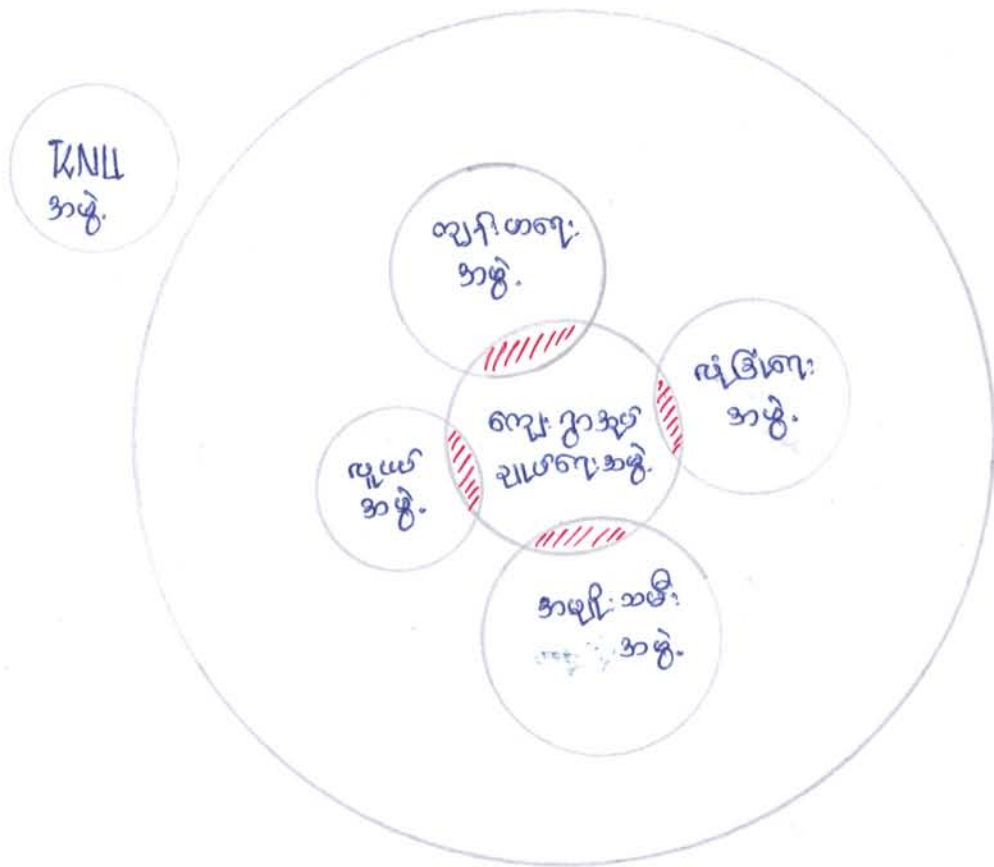 KNU
အဖွဲ့
ကျန်းမာရေး
အဖွဲ့
လုံခြုံရေး
အဖွဲ့
ကျေးရွာအုပ်
ချုပ်ရေးအဖွဲ့
လူငယ်
အဖွဲ့
အမျိုးသမီး
အဖွဲ့